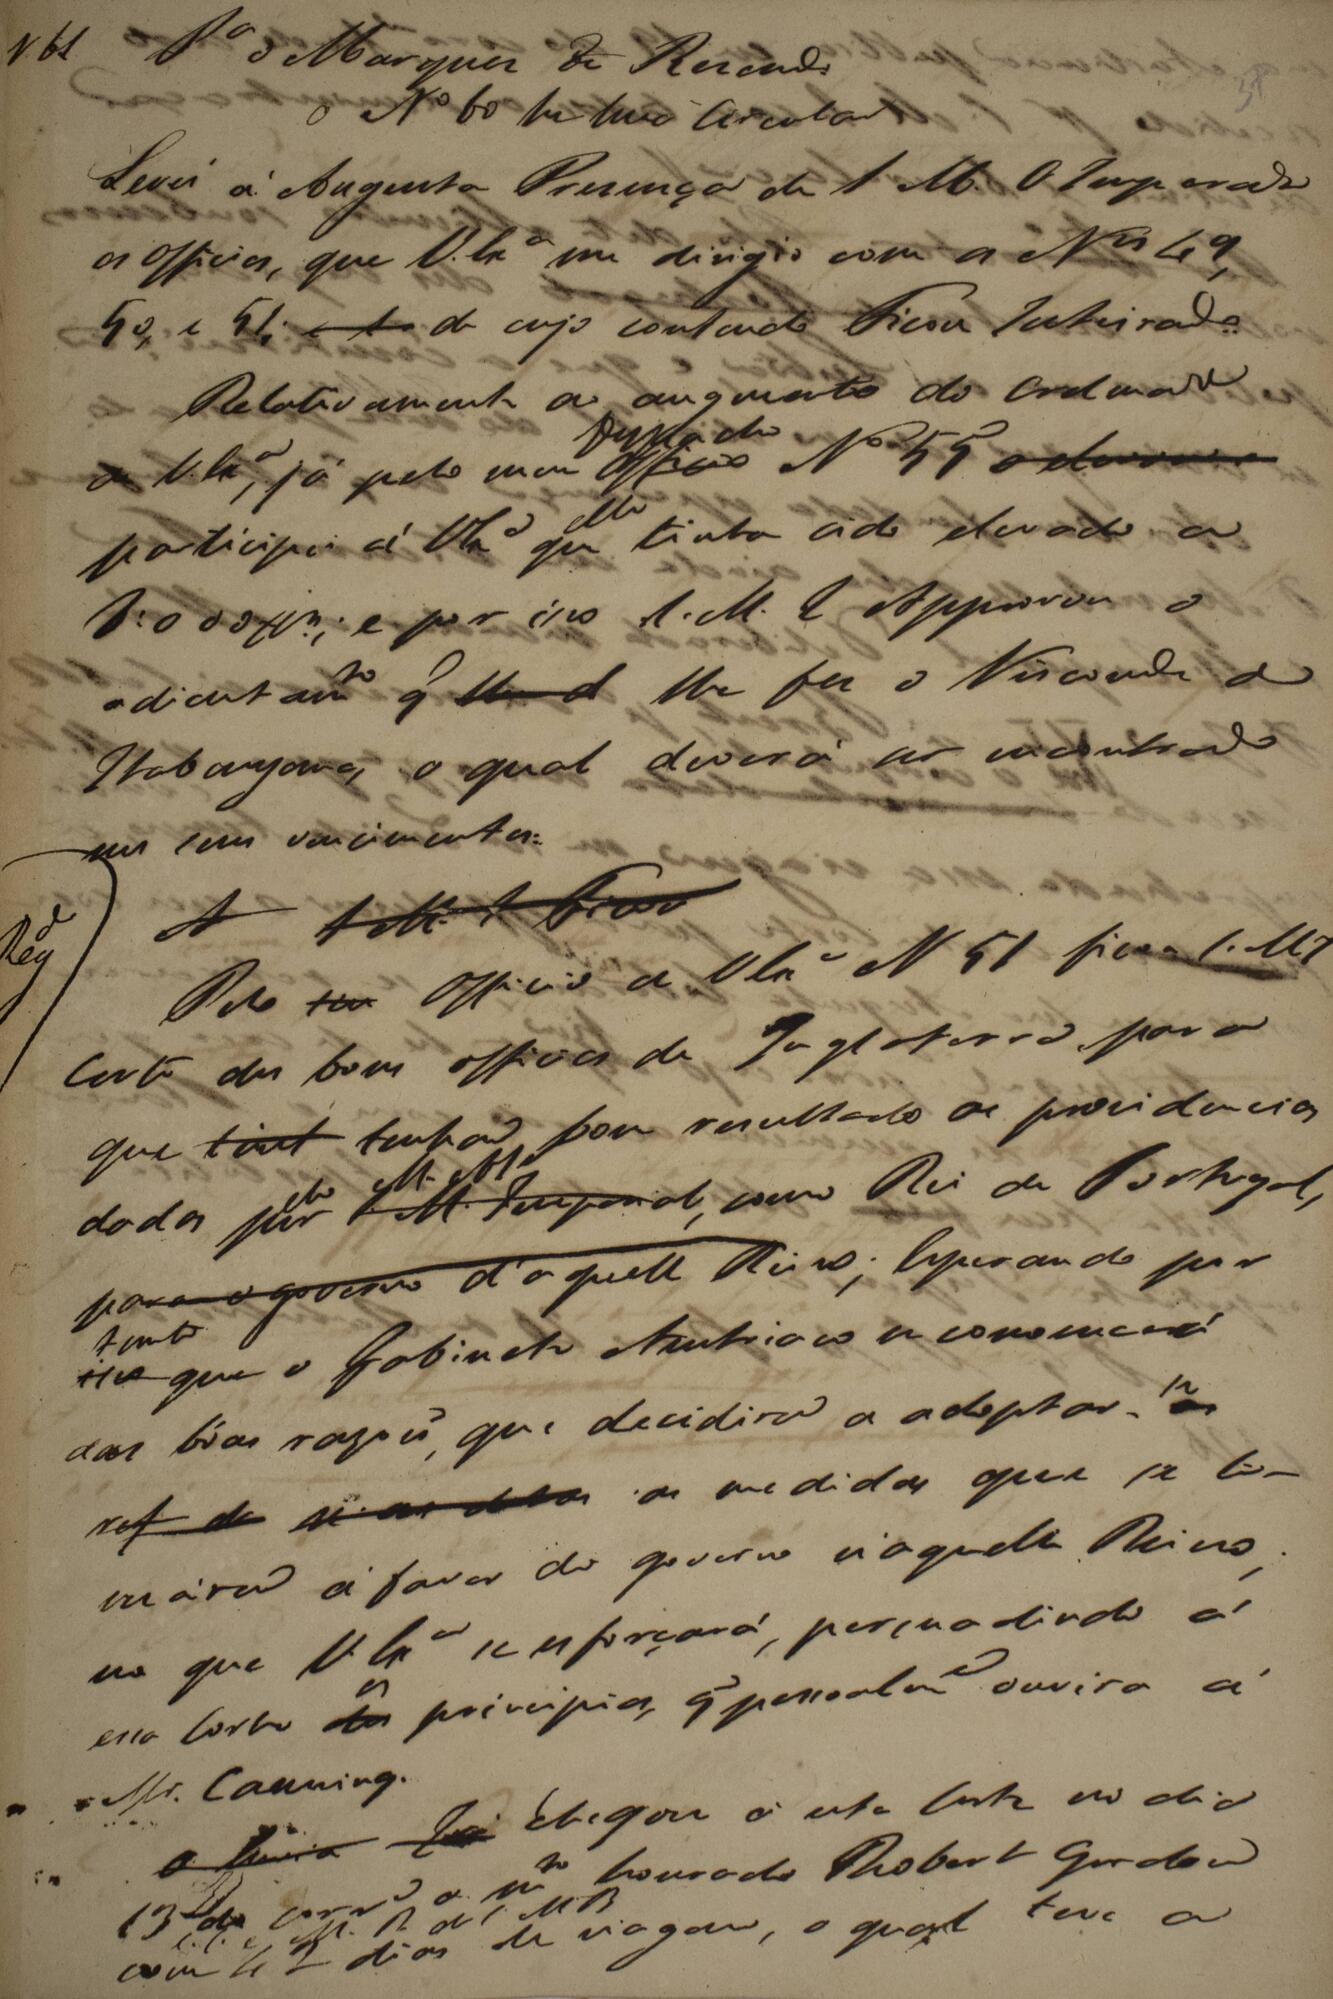 N 61 Pª o Marquez de Resende
o Nº 60 he huã Circular
58
Levei á Augusta Presença de S M. O Imperador
os officios, que V.Exª me dirigio com os Nos 49,
50, e 51, de cujo contendo Ficou Inteirado.
Relativamente ao augmento do ordenado
de V.Exª, já pelo meu Despacho officio Nº 55
participei á VExª que elle tinha sido elevado a
8:000$rs; e por isso S.M. I Approvou o
adientamto q̃ lhe fez o Visconde de
Itabayana, o qual deverá ser encontrado
nos seus vencimentos.
A S M. I Ficou
Regdo
Pelo officio de VExª N 51 ficou S.M.I
Certo dos bons officios de Inglaterra, para
que tenhaõ bom resultado as providencias
dadas por elo M. Aº S M. Imperial, como Rei de Portugal,
para o governo d'aquelle Reino; Esperando por
tanto
isso que o Gabinete Austriaco se convencerá
das bôas razoẽs, que decidiraõ a adoptar-se
as medidas que se to-
máraõ á favor do governo n'aquelle Reino,
no que V.Exª se esforçará, persuadindo á
essa Corte os principios, q̃ pessoalmẽ ouvira á
Mr. Canning.
Chegou á esta Corte no dia
13 do corre o mto honrado Robert Gordon
E.E. e M. P. de S. M B
com 42 dias de viagem, o qual teve a